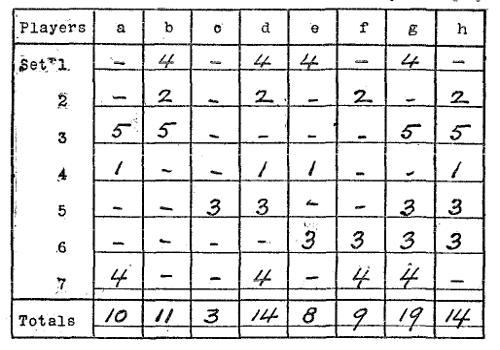 Players a b c d e f g h
Set 1 - 4 - 4 4 - 4 -
2 - 2 - 2 - 2 - 2
3 5 5 - - - - 5 5
4 1 - - 1 1 - - 1
5 - - 3 3 - - 3 3
6 - - - - 3 3 3 3
7 4 - - 4 - 4 4 -
Totals 10 11 3 14 8 9 19 14